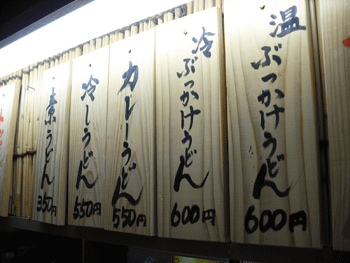 温ぶっかけうどん
600円
冷ぶっかけうどん
600円
カレーうどん
550円
冷しうどん
550円
素うどん
350円